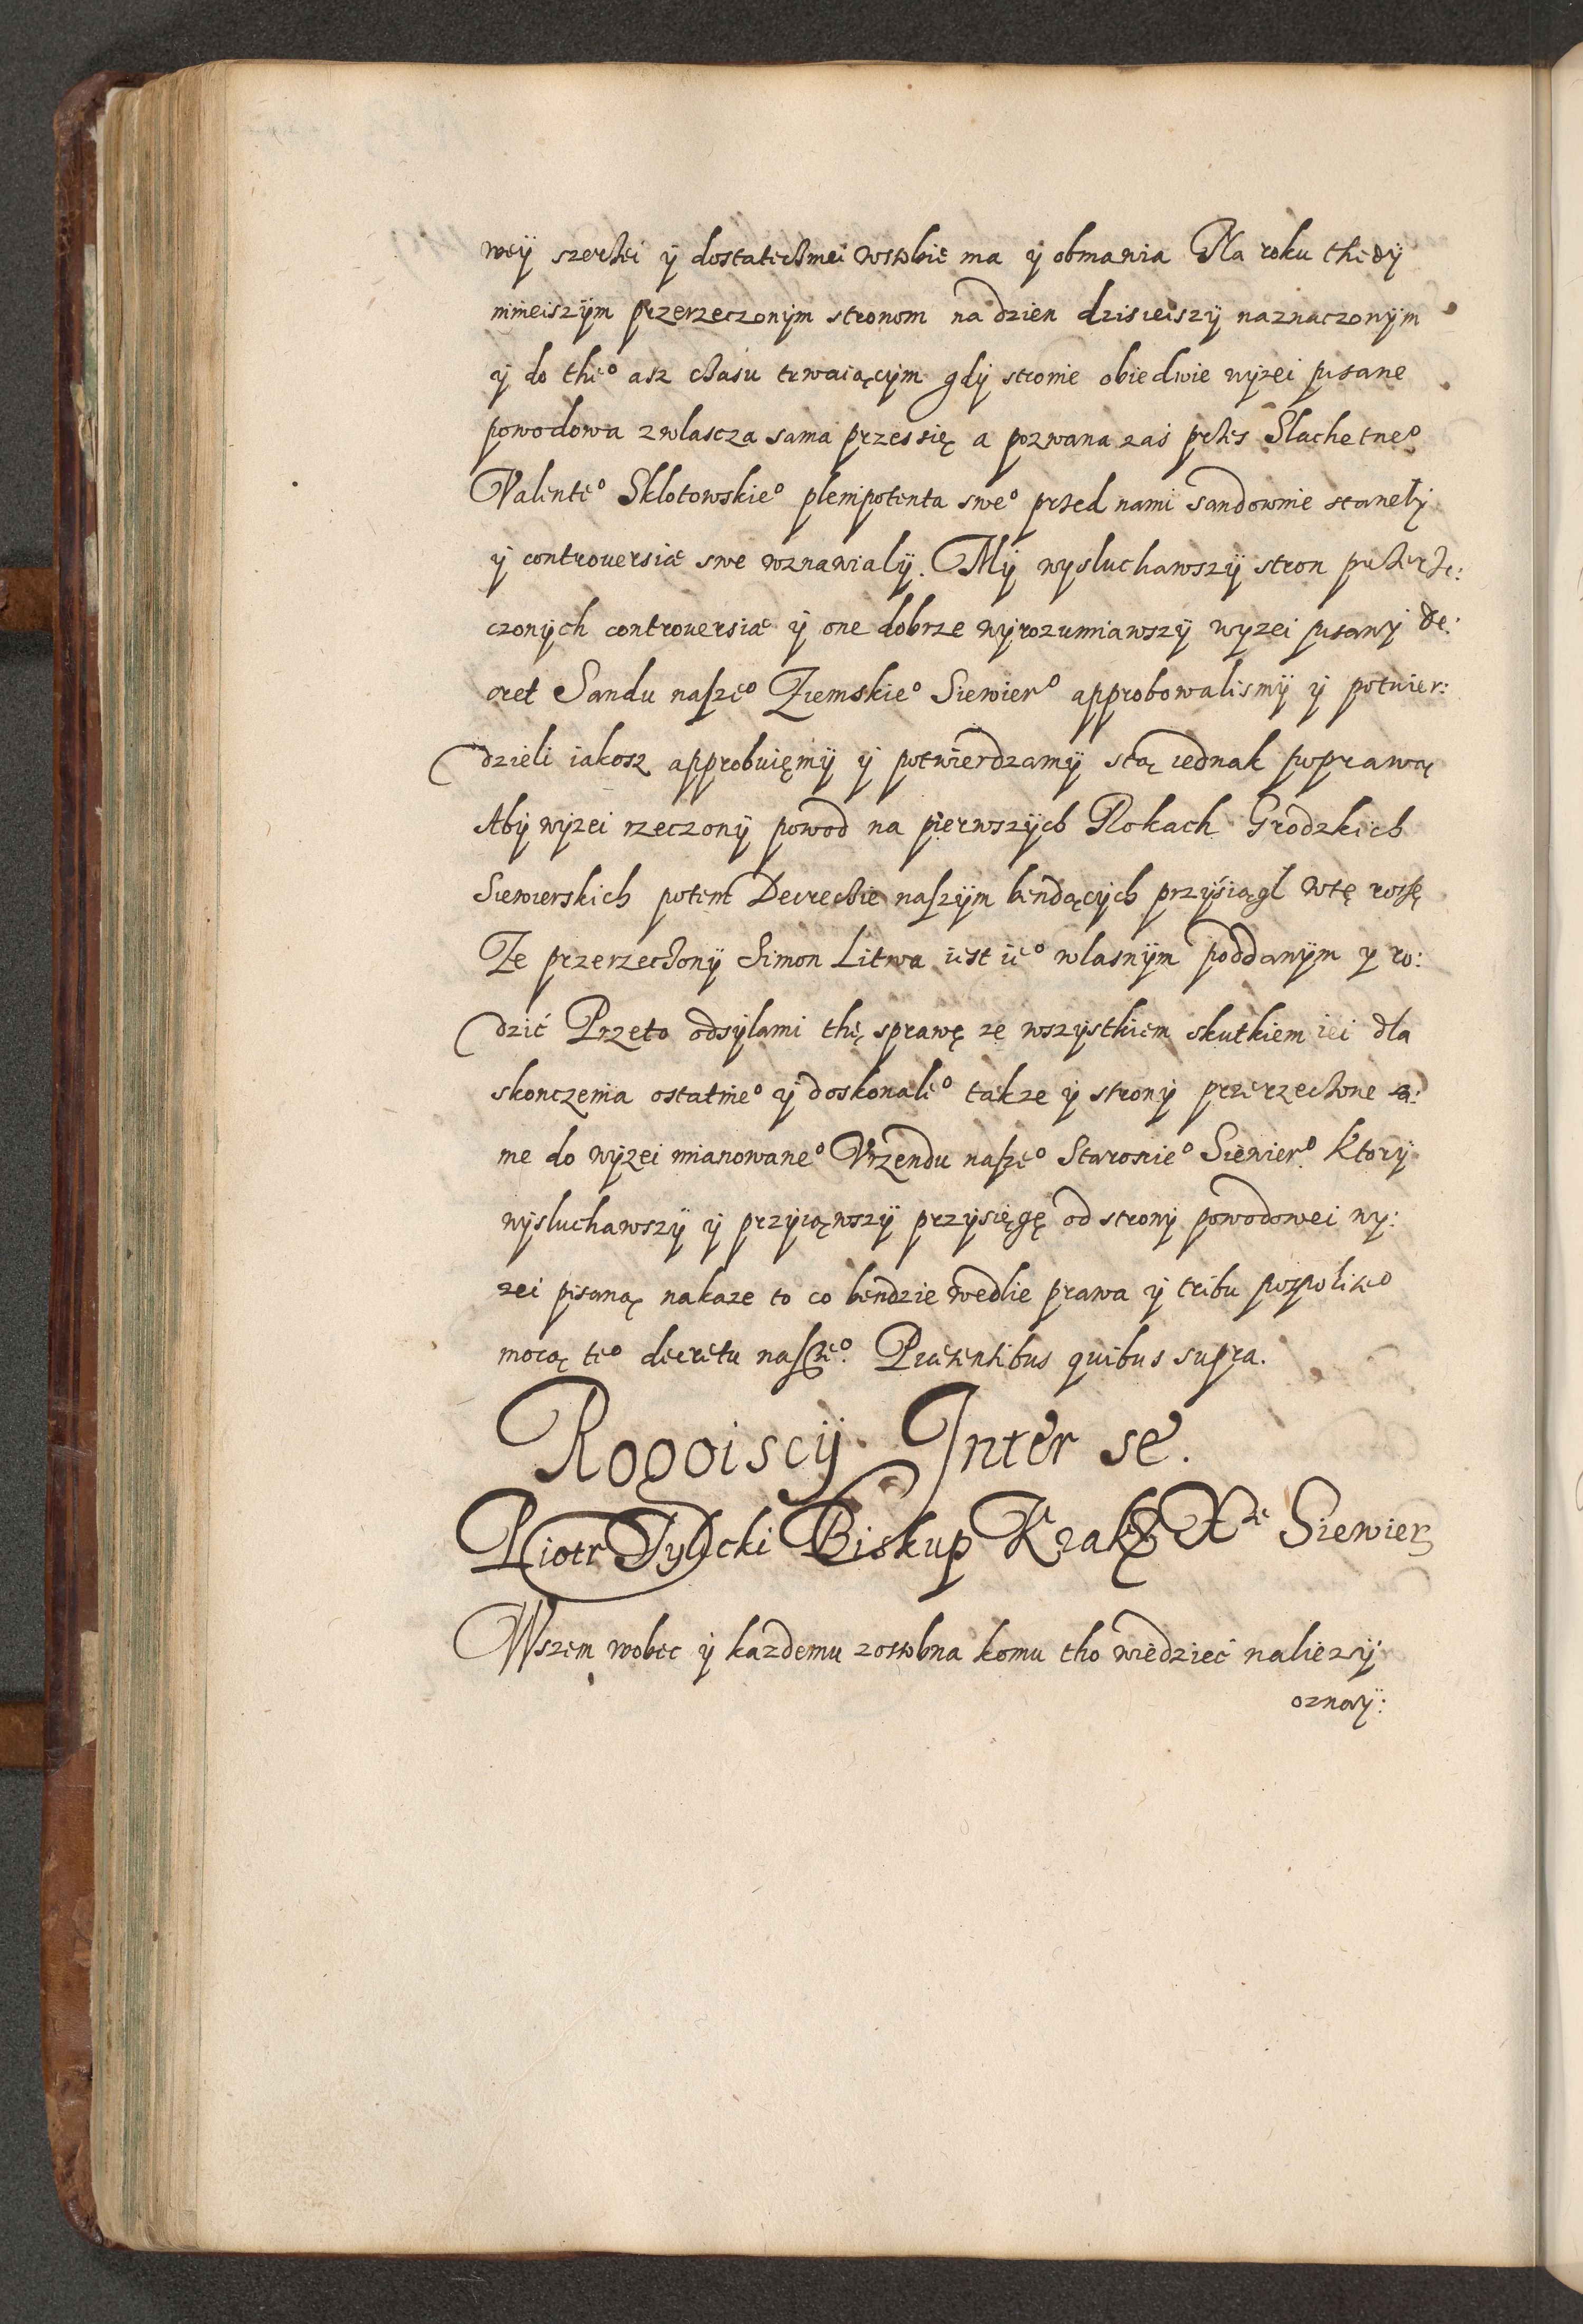 weÿ szerzei ÿ dostatecznei wsobie ma ÿ obmawia Na roku thedÿ
ninieiszÿm przerzeczonÿm stronom na dzien dzisieiszÿ naznaczonÿm
ÿ do the⁰ asz czasu trwaiącÿm gdÿ stronie obiedwie wÿzei pisane
powodowa zwlascza sama przessię a pozwana zaś przes Slachetne⁰
Valente⁰ Sklotowskie⁰ plenipotenta swe⁰ przed nami sandownie stanelÿ
ÿ controuersiæ swe wznawialÿ. Mÿ wysluchawszÿ stron przerze:
czonÿch controuersiæ ÿ one dobrze wÿrozumiawszÿ wyzei pisanÿ de:
cret Sandu nasze⁰ Ziemskie⁰ Siewier⁰ approbowalismÿ ÿ potwier:
dzieli iakosz approbuięmÿ ÿ potwierdzamÿ stą iednak poprawą
Abÿ wÿzei rzeczonÿ powod na pierwszÿch Rokach Grodzkich
Siewierskich potem Decrecie naszÿm bendącÿch przÿsiągl wtę rotę
Ze przerzeczonÿ Simon Litwa iest ie⁰ wlasnÿm poddanÿm y ro:
dzić Przeto odsÿlami thę sprawę ze wszystkiem skutkiem iei dla
skonczenia ostatnie⁰ ÿ doskonale⁰ takze ÿ stronÿ przerzeczone sa:
me do wÿzei mianowane⁰ Vrzendu nasze⁰ Starosie⁰ Siewier⁰ Ktorÿ
wÿsluchawszÿ ÿ przÿiąwszÿ przysięgę od stronÿ powodowei wy:
zei pisaną nakaze to co bendzie wedlie prawa ÿ tribu pospolite⁰
mocą te⁰ decretu nasze⁰. Præsentibus quibus supra.
Rogoiscÿ Inter se.
Piotr Tylicki Biskup Krak: X⁻ᶻᵉ Siewier
Wszem wobec ÿ kazdemu zosobna komu tho wiedzieć naliezÿ
oznaÿ: